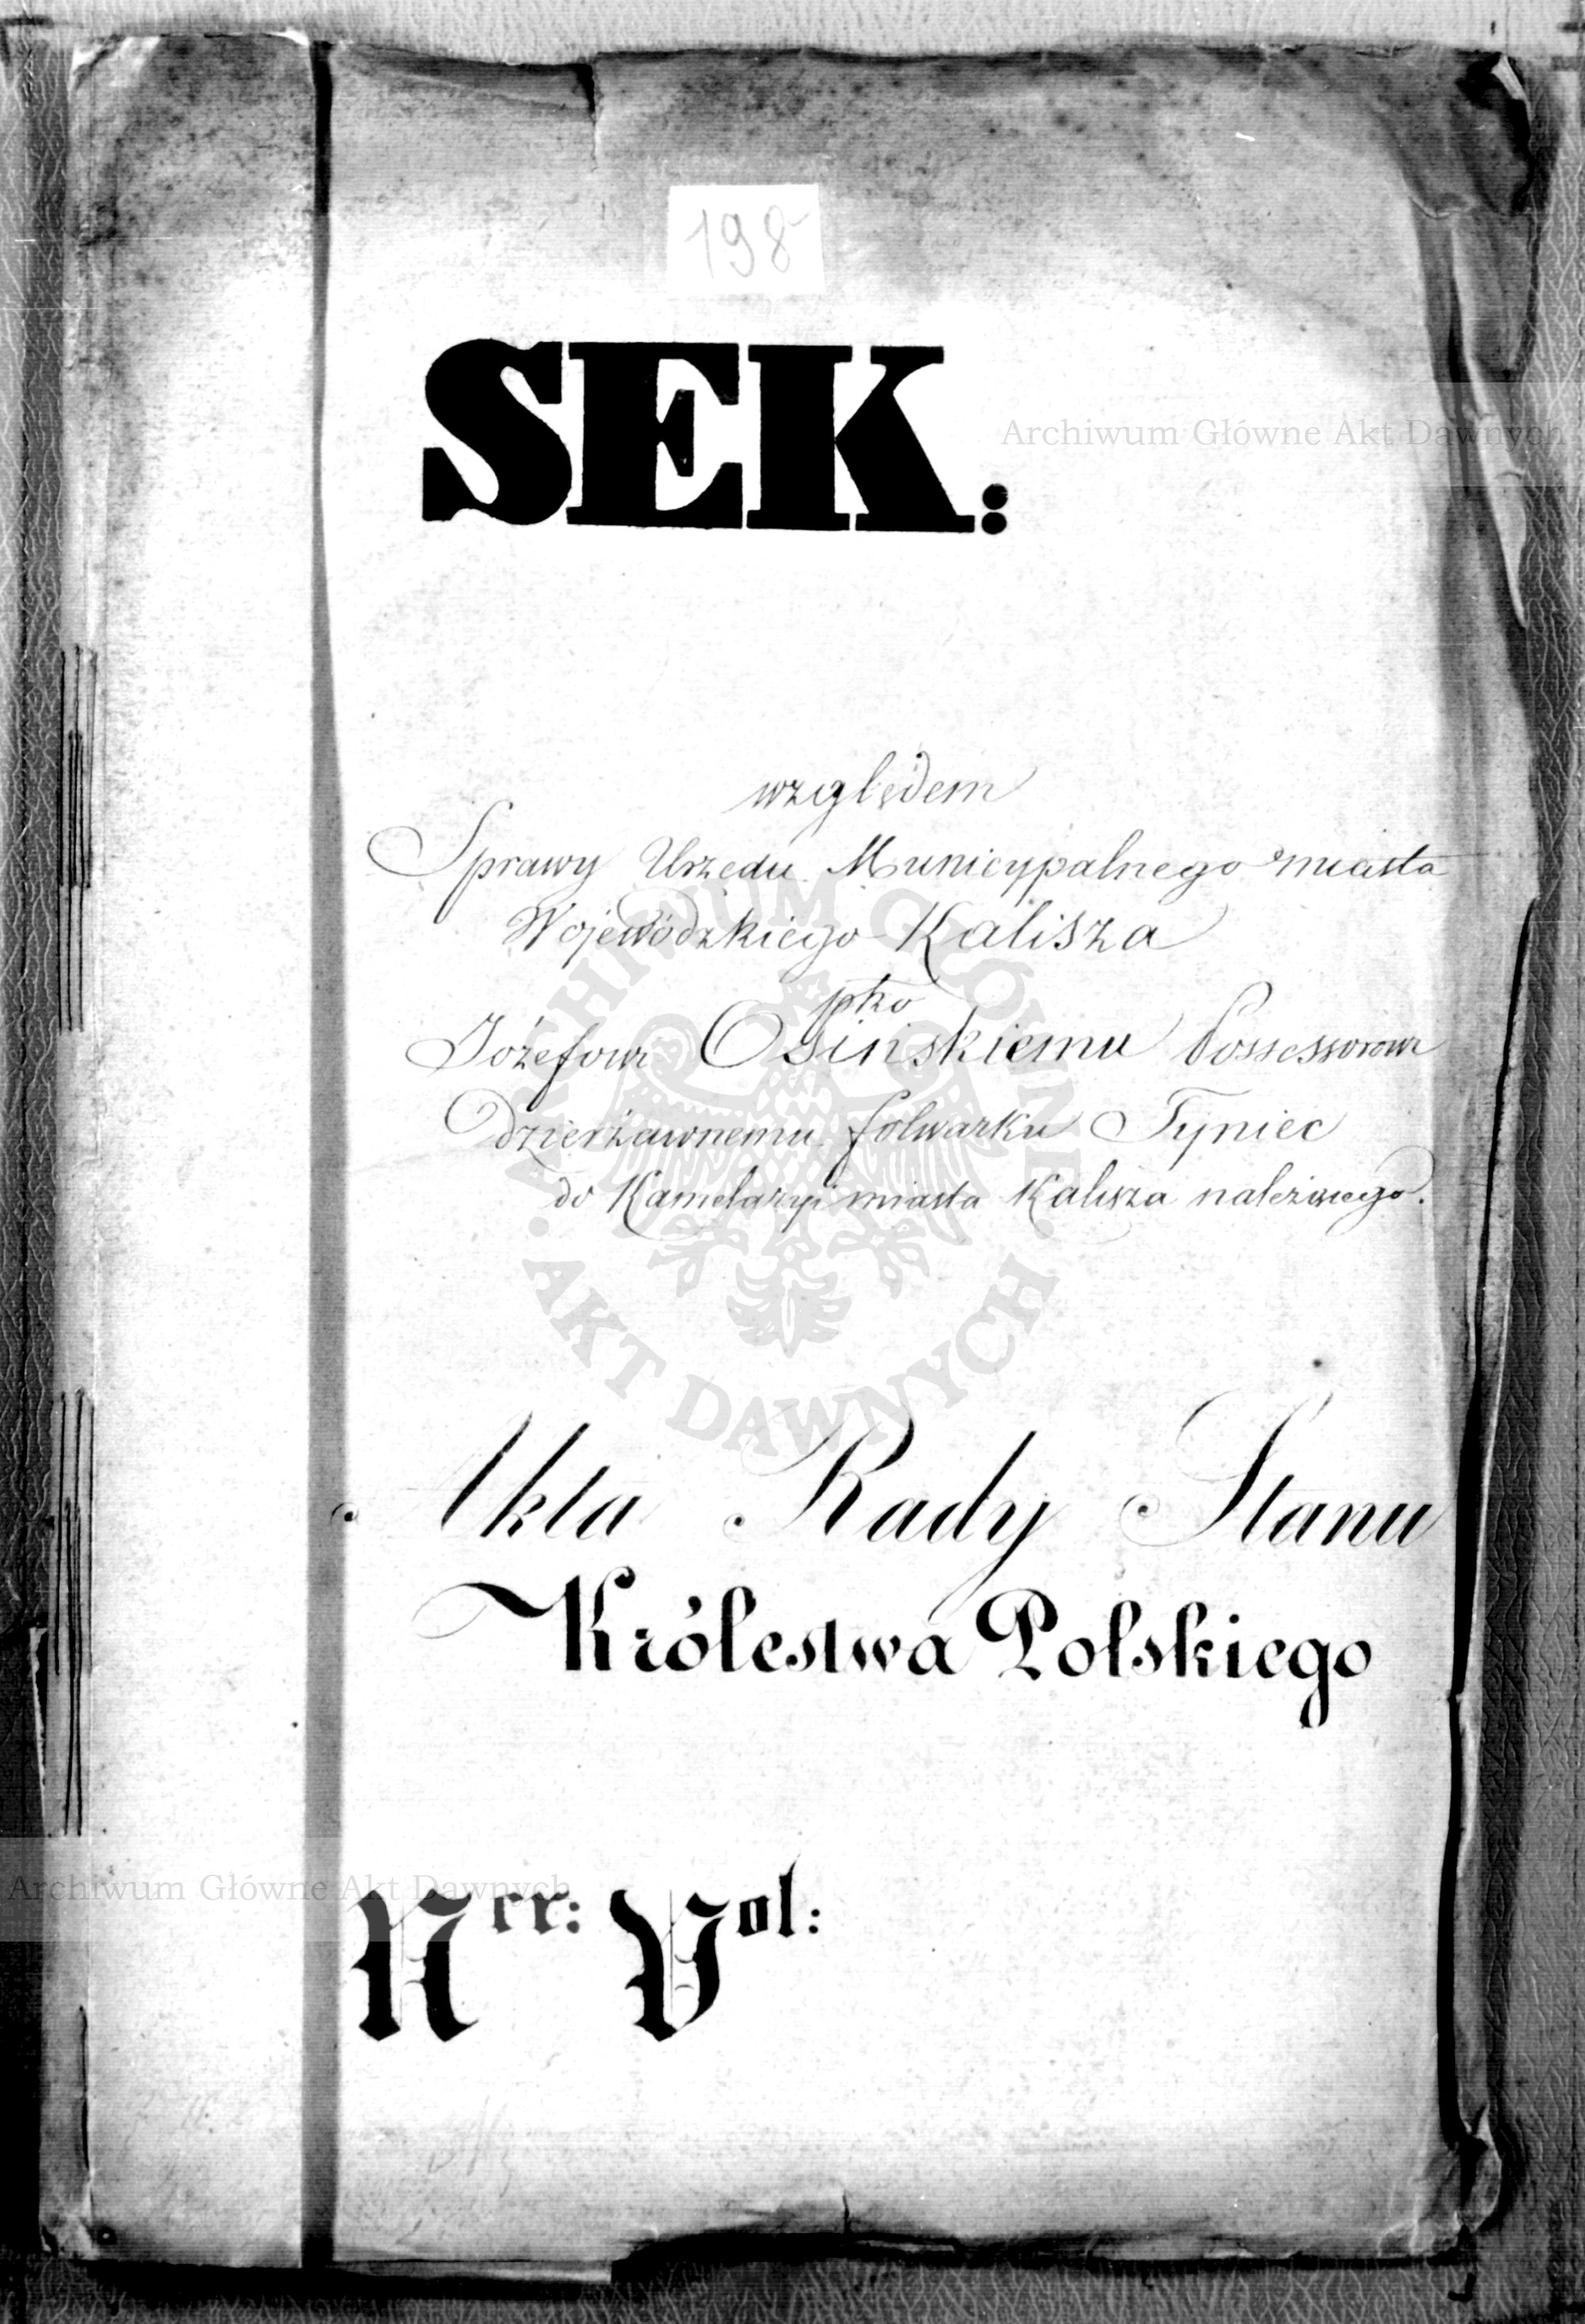 198
SEK.:
Archiwum Główne Akt Dawnych
względem
Sprawy Urzędu Municypalnego miasta
Wojewódzkiego Kalisza
pko
Józefowi Osińskiemu Possessorowi
Dzierżawnemu folwarku Tyniec
do Kamelaryi miasta Kalisza należącego.
ARCHIWUM GŁÓWNE
AKT DAWNYCH
Akta Rady Stanu
Królestwa Polskiego
Archiwum Główne Akt Dawnych
Ner: Vol: